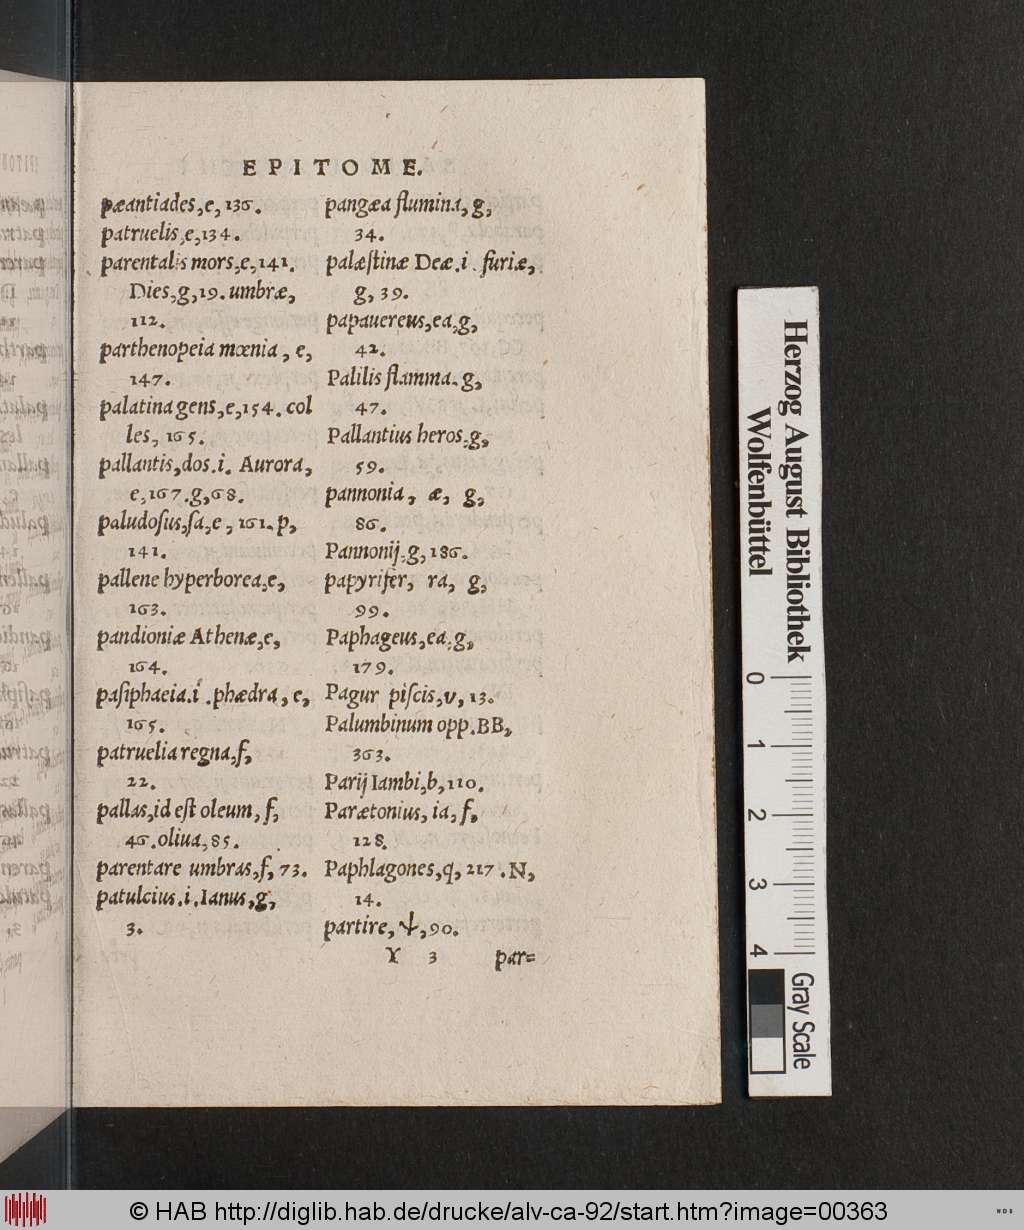 EPITOME.
pæantiades, e, 136.
patruelis, e, 134.
parentalis mors, e, 141.
Dies, g, 19. umbræ,
112.
parthenopeia mœnia, e,
147.
palatina gens, e, 154. col
les, 165.
pallantis, dos .i. Aurora,
e, 167. g, 68.
paludoſus, ſa, e, 161. p,
141.
pallene hyperborea, e,
163.
pandioniæ Athenæ, e,
164.
paſiphaeia .i. phædra, e,
165.
patruelia regna, f,
22.
pallas, id eſt oleum, f,
46. oliua, 85.
parentare umbras, f, 73.
patulcius .i. Ianus, g,
3.
pangæa flumina, g,
34.
palæſtinæ Deæ .i. furiæ,
g, 39.
papauereus, ea, g,
42.
Palilis flamma. g,
47.
Pallantius heros, g,
59.
pannonia, æ, g,
86.
Pannonij, g, 186.
papyrifer, ra, g,
99.
Paphageus, ea, g,
179.
Pagur piſcis, v, 13.
Palumbinum opp. BB,
363.
Parij Iambi, b, 110.
Parætonius, ia, f,
128.
Paphlagones, q, 217. N,
14.
partire, ψ, 90.
Y 3 par=
Herzog August Bibliothek
Wolfenbüttel
0 1 2 3 4
Gray Scale
© HAB http://diglib.hab.de/drucke/alv-ca-92/start.htm?image=00363